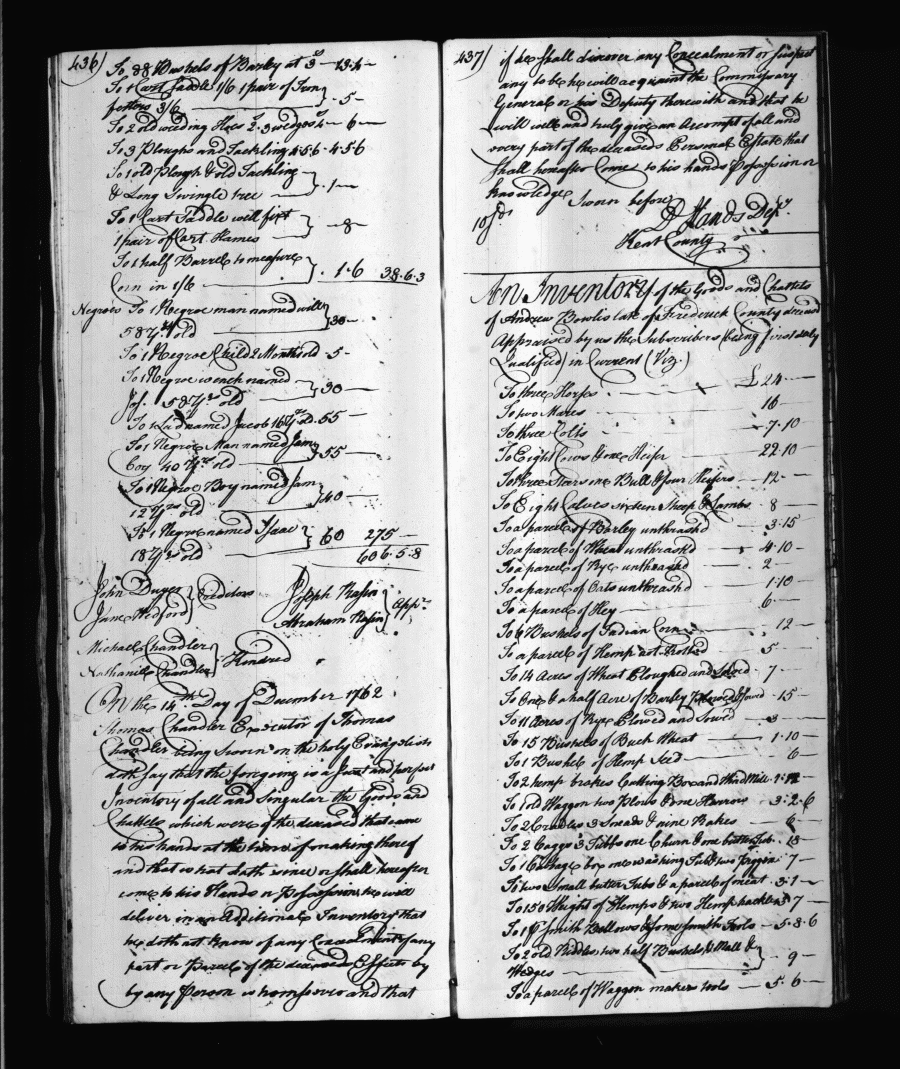 436)
To 88 Bushels of Barley at 3/ 13.4
To 1 Cart Saddle 1/6 1 pair of Iron
fetters 3/6 } . 5 -
To 2 old weeding Hoes 2. 3 wedges 4 6
To 3 Ploughs and Tackling 4.5.6 4.5.6
To 1 old Plough & old Tackling
& Long Swingle tree } . 1 -
To 1 Cart Saddle will fixt
1 pair of Cart Hames } - 8 -
To 1 half Barrel to measure
Corn in 1/6 } . 1.6 38.6.3
Negroes To 1 Negroe man named will
58 Yrs old } 30 -
To 1 Negroe Child 2 Months old - 5 -
To 1 Negroe wench named
58 Yrs old } 30 -
To 1 Lad named Jacob 16 Yrs old . 55 -
To 1 Negroe Man named Sam
Coy 40 Yrs old } 55 -
To 1 Negroe Boy named Sam
12 Yrs old } 40 -
To 1 Negroe named Isaac
18 Yrs old } 60 275 -
606.5.8
John Duyer
Jane Medford } Creditors
Joseph Rasin
Abraham Rasin } Apprs
Michall Chandler
Nathaniel Chandler } Kindred
On the 14th Day of December 1762
Thomas Chandler Executor of Thomas
Chandler being Sworn on the holy Evangelists
doth say that the foregoing is a Just and perfect
Inventory of all and Singular the Goods and
Chattels which were of the deceased that came
to his hands at the time of making thereof
and that what hath since or shall hereafter
come to his Hands or Possession he will
deliver in an Additional Inventory that
he doth not know of any Concealment of any
part or Parcel of the deceased Effects by
by any Person whomsoever and that
437)
if he shall discover any Concealment or suspect
any to be he will acquaint the Commissary
General or his Deputy therewith and that he
will well and truly give an Accompt of all and
every part of the deceased Personal Estate that
shall hereafter Come to his hands Possession or
knowledge Sworn before
10 Sds
D Hands Depy
Kent County
An Inventory of the Goods and Chattels
of Andrew Bowlis late of Frederick County deceased
Appraised by us the Subscribers (being first duly
Qualified) in Current (Viz.)
To three Horses £ 24 -
To two Mares 16 -
To three Colts 7.10
To Eight Cows & one Heifer 22.10
To three Stears one Bull & four Heifers 12 -
To Eight Calves sixteen Sheep & Lambs 8
To a parcel of Barley unthrashd 3.15
To a parcel of Wheat unthrashd 4.10 -
To a parcel of Rye unthrashd 2 -
To a parcel of Oats unthrashd 1.10 -
To a parcel of Hey 6 -
To 6 Bushels of Indian Corn 12 -
To a parcel of Hemp not Rotted 5
To 14 Acres of Wheat Ploughed and Sowed 7 -
To One & a half Acre of Barley Plowed & Sowed 15 -
To 11 Acres of Rye Plowed and Sowed 3 -
To 15 Bushels of Buck Wheat 1.10 -
To 1 Bushel of Hemp Seed 6 -
To 2 hemp brakes Cutting Box and Wind Mill 1.12 -
To 1 old Waggon two Plows & one Harrow 3.2.6
To 2 Cradles 3 Sneads & nine Rakes 6 -
To 2 Caggs 3 Tubbs one Churn & one butter Tub . 13
To 1 Cabbage box one washing Tub & two Piggin . 7 -
To two Small butter Tubs & a parcel of meat 3.1 -
To 150 Weight of Hemp & two Hemp hackles 3.7 -
To 1 pr Smith Bellows & some smith Tools 5.8.6
To 2 old Riddles, two half Bushels, 1 Mall &
Wedges } . 9 -
To a parcel of Waggon makers tools 5.6 -